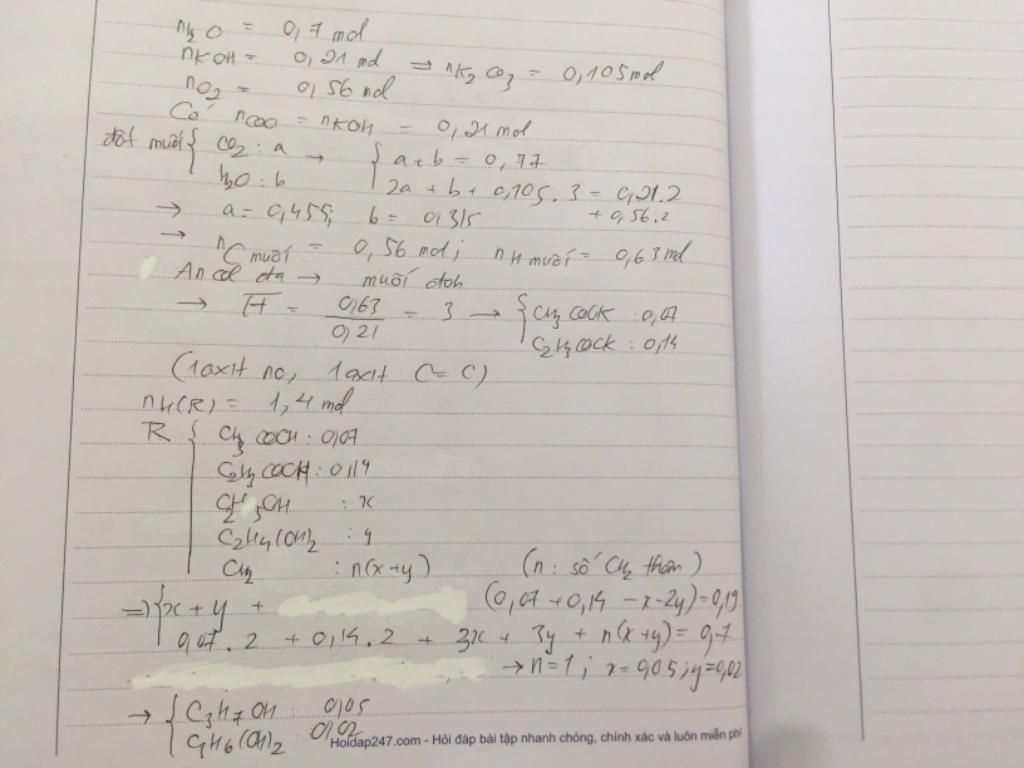 nH2O = 0,7 mol
nKOH = 0,21 mol => nK2CO3 = 0,105mol
nO2 = 0,56 mol
Có nCOO = nKOH = 0,21 mol
đốt muối { CO2 : a → { a + b = 0,77
H2O : b 2a + b + 0,105.3 = 0,21.2 + 0,56.2
→ a = 0,455; b = 0,315
→ nC muối = 0,56 mol; nH muối = 0,63 mol
Ancol đa → muối đơn
→ H̅ = 0,63/0,21 = 3 → { CH3COOK : 0,07
C2H3COOK : 0,14
(1 axit no, 1 axit C=C)
nH(R) = 1,4 mol
R { CH3COOH : 0,07
C2H3COOH : 0,14
C2H5OH : x
C2H4(OH)2 : y
CH2 : n(x+y) (n : số CH2 thêm)
=> { x + y + (0,07 + 0,14 - x - 2y) = 0,19
0,07.2 + 0,14.2 + 3x + 3y + n(x+y) = 0,7
→ n=1; x=0,05; y=0,02
→ { C3H7OH : 0,05
C3H6(OH)2 : 0,02
Hoidap247.com - Hỏi đáp bài tập nhanh chóng, chính xác và luôn miễn phí